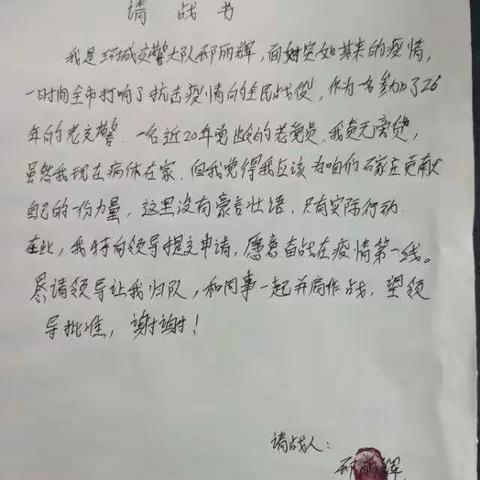 请战书
我是环城交警大队邢丽辉，面对突如其来的疫情，
一时间全市打响了抗击疫情的全民战役，作为一名参加了26
年的老交警，一名近20年党龄的老党员，我责无旁贷，
虽然我现在病休在家，但我觉得我应该为咱们石家庄贡献
自己的一份力量，这里没有豪言壮语，只有实际行动.
在此，我特向领导提交申请，愿意奋战在疫情第一线。
恳请领导让我归队，和同事一起并肩作战，望领
导批准，谢谢！
请战人：
邢丽辉